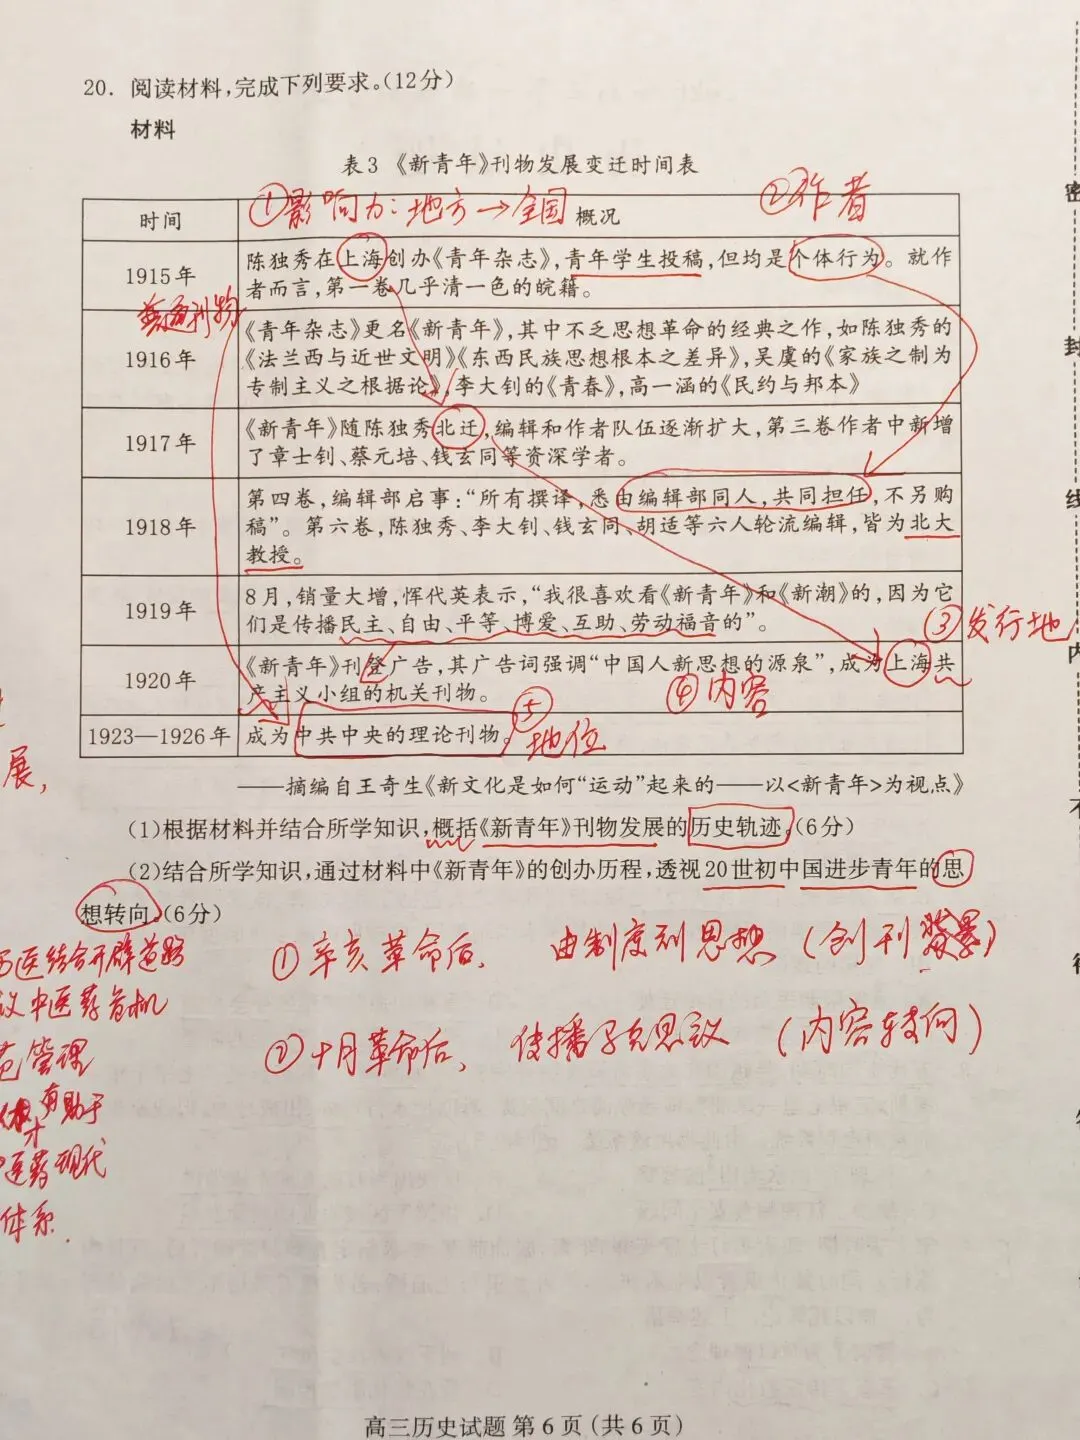 20. 阅读材料,完成下列要求。(12分)
材料
表3 《新青年》刊物发展变迁时间表
①影响力:地方→全国
②作者
时间 概况
1915年 陈独秀在上海创办《青年杂志》,青年学生投稿,但均是个体行为。就作
者而言,第一卷几乎清一色的皖籍。
普通刊物
1916年 《青年杂志》更名《新青年》,其中不乏思想革命的经典之作,如陈独秀的
《法兰西与近世文明》《东西民族思想根本之差异》,吴虞的《家族之制为
专制主义之根据论》,李大钊的《青春》,高一涵的《民约与邦本》
1917年 《新青年》随陈独秀北迁,编辑和作者队伍逐渐扩大,第三卷作者中新增
了章士钊、蔡元培、钱玄同等资深学者。
1918年 第四卷,编辑部启事:“所有撰译,悉由编辑部同人,共同担任,不另购
稿”。第六卷,陈独秀、李大钊、钱玄同、胡适等六人轮流编辑,皆为北大
教授。
1919年 8月,销量大增,恽代英表示,“我很喜欢看《新青年》和《新潮》的,因为它
们是传播民主、自由、平等、博爱、互助、劳动福音的”。
③发行地
1920年 《新青年》刊登广告,其广告词强调“中国人新思想的源泉”,成为上海共
产主义小组的机关刊物。
④内容
1923—1926年 成为中共中央的理论刊物。
⑤地位
展,
——摘编自王奇生《新文化是如何“运动”起来的——以<新青年>为视点》
(1)根据材料并结合所学知识,概括《新青年》刊物发展的历史轨迹。(6分)
(2)结合所学知识,通过材料中《新青年》的创办历程,透视20世初中国进步青年的思
想转向。(6分)
①辛亥革命后, 由制度到思想(创刊背景)
②十月革命后, 传播马克思主义(内容转向)
西医结合开辟道路
议中医药危机
范管理
有助于
才
医药现代
体系.
密
封
线
内
不
高三历史试题 第6页(共6页)